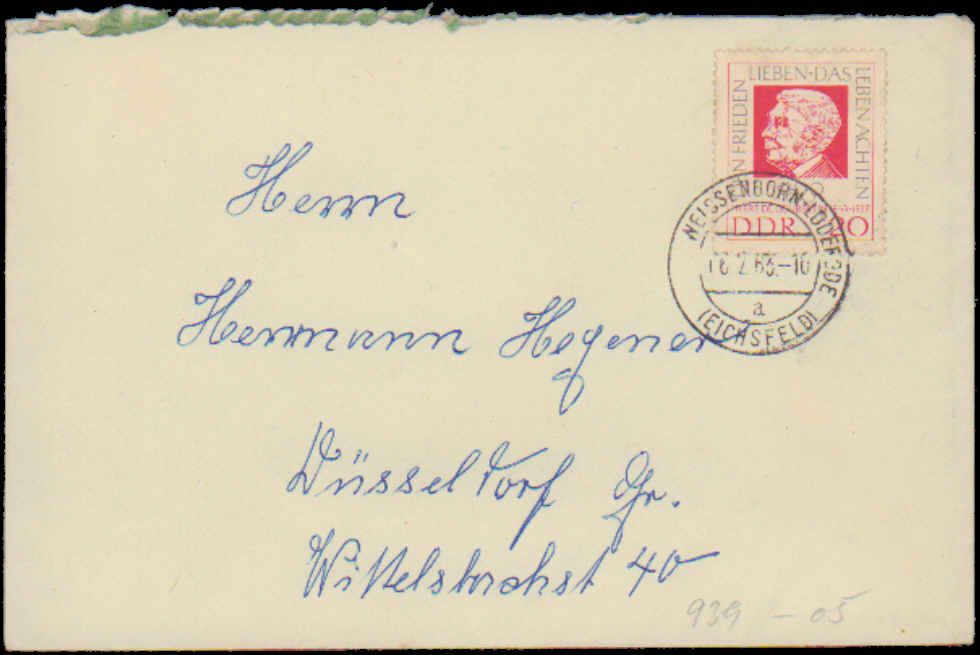 Herrn
Hermann Hegener
Düsseldorf Gr.
Wittelsbachst 40
LIEBEN · DAS
LEBEN ACHTEN
N FRIEDEN
DDR 20
WEISSENBORN-LÜDERODE
18.2.63.-10
a
(EICHSFELD)
939 - 05